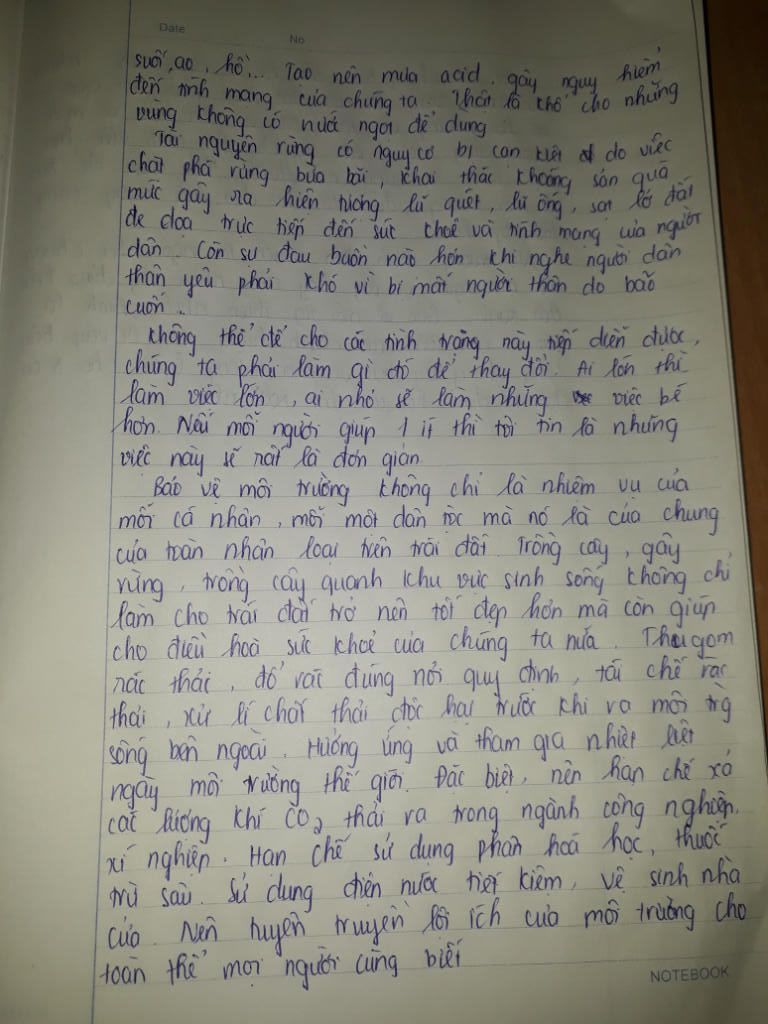 Date
No
suối, ao, hồ... Tạo nên mưa acid. gây nguy hiểm
đến tính mạng của chúng ta. Thật là khổ cho những
vùng không có nước ngọt để dùng
Tài nguyên rừng có nguy cơ bị cạn kiệt do việc
chặt phá rừng bừa bãi, khai thác khoáng sản quá
mức gây ra hiện tượng lũ quét, lũ ống, sạt lở đất
đe doạ trực tiếp đến sức khoẻ và tính mạng của người
dân. Còn sự đau buồn nào hơn khi nghe người dân
thân yêu phải khó vì bị mất người thân do bão
cuốn.
Không thể để cho các tình trạng này tiếp diễn được,
chúng ta phải làm gì đó để thay đổi. Ai lớn thì
làm việc lớn, ai nhỏ sẽ làm những việc bé
hơn. Nếu mỗi người giúp 1 ít thì tôi tin là những
việc này sẽ rất là đơn giản
Bảo vệ môi trường không chỉ là nhiệm vụ của
mỗi cá nhân, mỗi một dân tộc mà nó là của chung
của toàn nhân loại trên trái đất. Trồng cây, gây
rừng, trồng cây quanh khu vực sinh sống không chỉ
làm cho trái đất trở nên tốt đẹp hơn mà còn giúp
cho điều hoà sức khoẻ của chúng ta nữa. Thu gom
rác thải, đổ rác đúng nơi quy định, tái chế rác
thải, xử lí chất thải độc hại trước khi ra môi trg
sống bên ngoài. Hưởng ứng và tham gia nhiệt liệt
ngày môi trường thế giới. Đặc biệt, nên hạn chế xả
các lượng khí CO₂ thải ra trong ngành công nghiệp,
xí nghiệp. Hạn chế sử dụng phân hoá học, thuốc
trừ sâu. Sử dụng điện nước tiết kiệm, vệ sinh nhà
cửa. Nên tuyên truyền lợi ích của môi trường cho
toàn thể mọi người cùng biết
NOTEBOOK